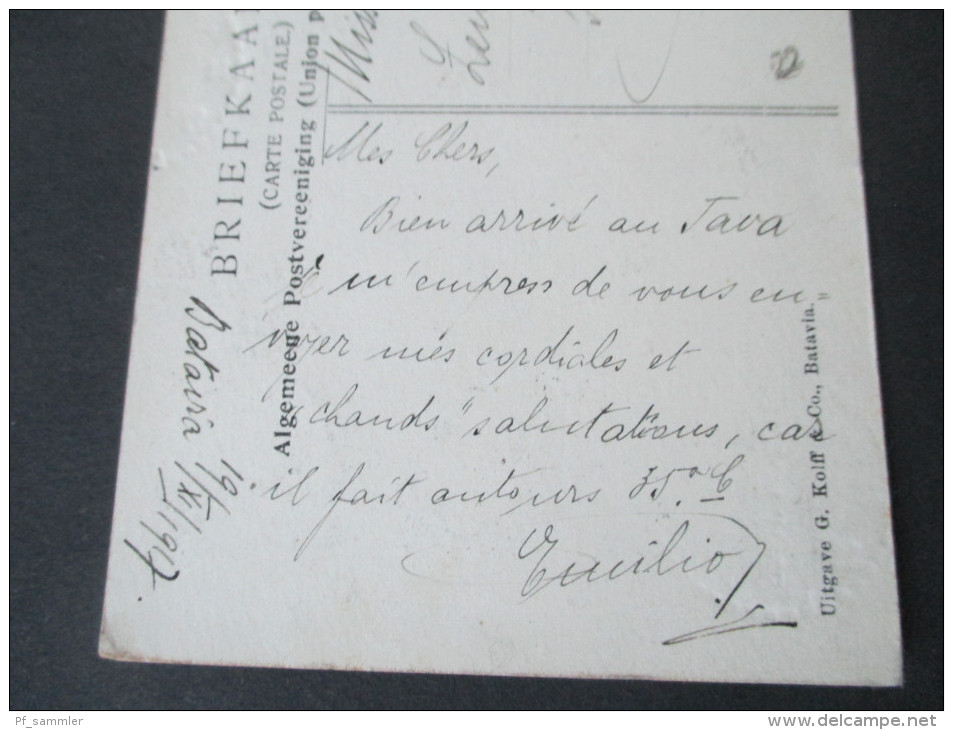 BRIEFKAA
(CARTE POSTALE.)
Algemeene Postvereeniging (Union p
Miss
Mes Chers,
Bien arrivé au Java
Je m'empress de vous en"
voyer mes cordiales et
"chauds" salutations, car
il fait autours 35° C
Emilio
Batavia 19/XI/1917.
Uitgave G. Kolff & Co., Batavia.
Pf_sammler
www.delcampe.net